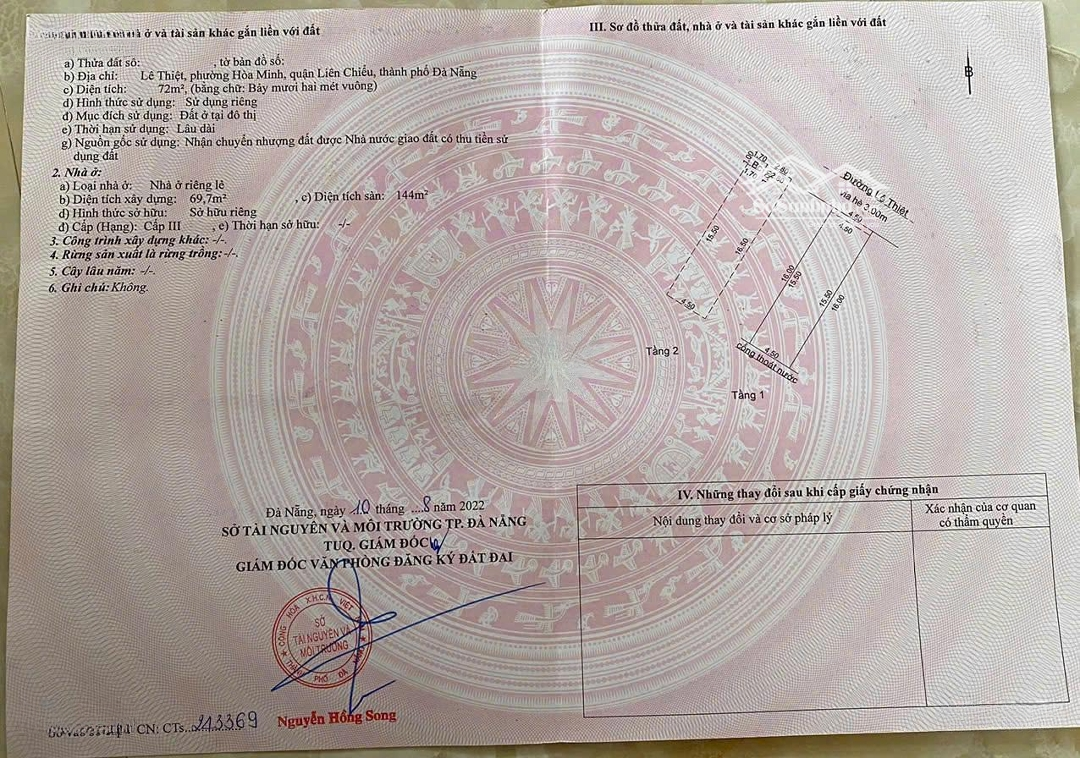 ở và tài sản khác gắn liền với đất
a) Thửa đất số: , tờ bản đồ số:
b) Địa chỉ: Lê Thiệt, phường Hòa Minh, quận Liên Chiểu, thành phố Đà Nẵng
c) Diện tích: 72m², (bằng chữ: Bảy mươi hai mét vuông)
d) Hình thức sử dụng: Sử dụng riêng
đ) Mục đích sử dụng: Đất ở tại đô thị
e) Thời hạn sử dụng: Lâu dài
g) Nguồn gốc sử dụng: Nhận chuyển nhượng đất được Nhà nước giao đất có thu tiền sử
dụng đất
2. Nhà ở:
a) Loại nhà ở: Nhà ở riêng lẻ
b) Diện tích xây dựng: 69,7m² , c) Diện tích sàn: 144m²
d) Hình thức sở hữu: Sở hữu riêng
đ) Cấp (Hạng): Cấp III , e) Thời hạn sở hữu: -/-
3. Công trình xây dựng khác: -/-.
4. Rừng sản xuất là rừng trồng: -/-.
5. Cây lâu năm: -/-.
6. Ghi chú: Không.
Đà Nẵng, ngày 10 tháng ...8 năm 2022
SỞ TÀI NGUYÊN VÀ MÔI TRƯỜNG TP. ĐÀ NẴNG
TUQ. GIÁM ĐỐC
GIÁM ĐỐC VĂN PHÒNG ĐĂNG KÝ ĐẤT ĐAI
CỘNG HÒA X.H.C.N VIỆT
SỞ
TÀI NGUYÊN VÀ
MÔI TRƯỜNG
THÀNH PHỐ ĐÀ
Nguyễn Hồng Song
CN: CTs..213369
III. Sơ đồ thửa đất, nhà ở và tài sản khác gắn liền với đất
B
1.70
15.50
16.50
4.50
Tầng 2
Đường Lê Thiệt
Vỉa hè 3.00m
4.50
4.50
16.00
15.50
15.50
16.00
4.50
cống thoát nước
Tầng 1
IV. Những thay đổi sau khi cấp giấy chứng nhận
Nội dung thay đổi và cơ sở pháp lý
Xác nhận của cơ quan
có thẩm quyền